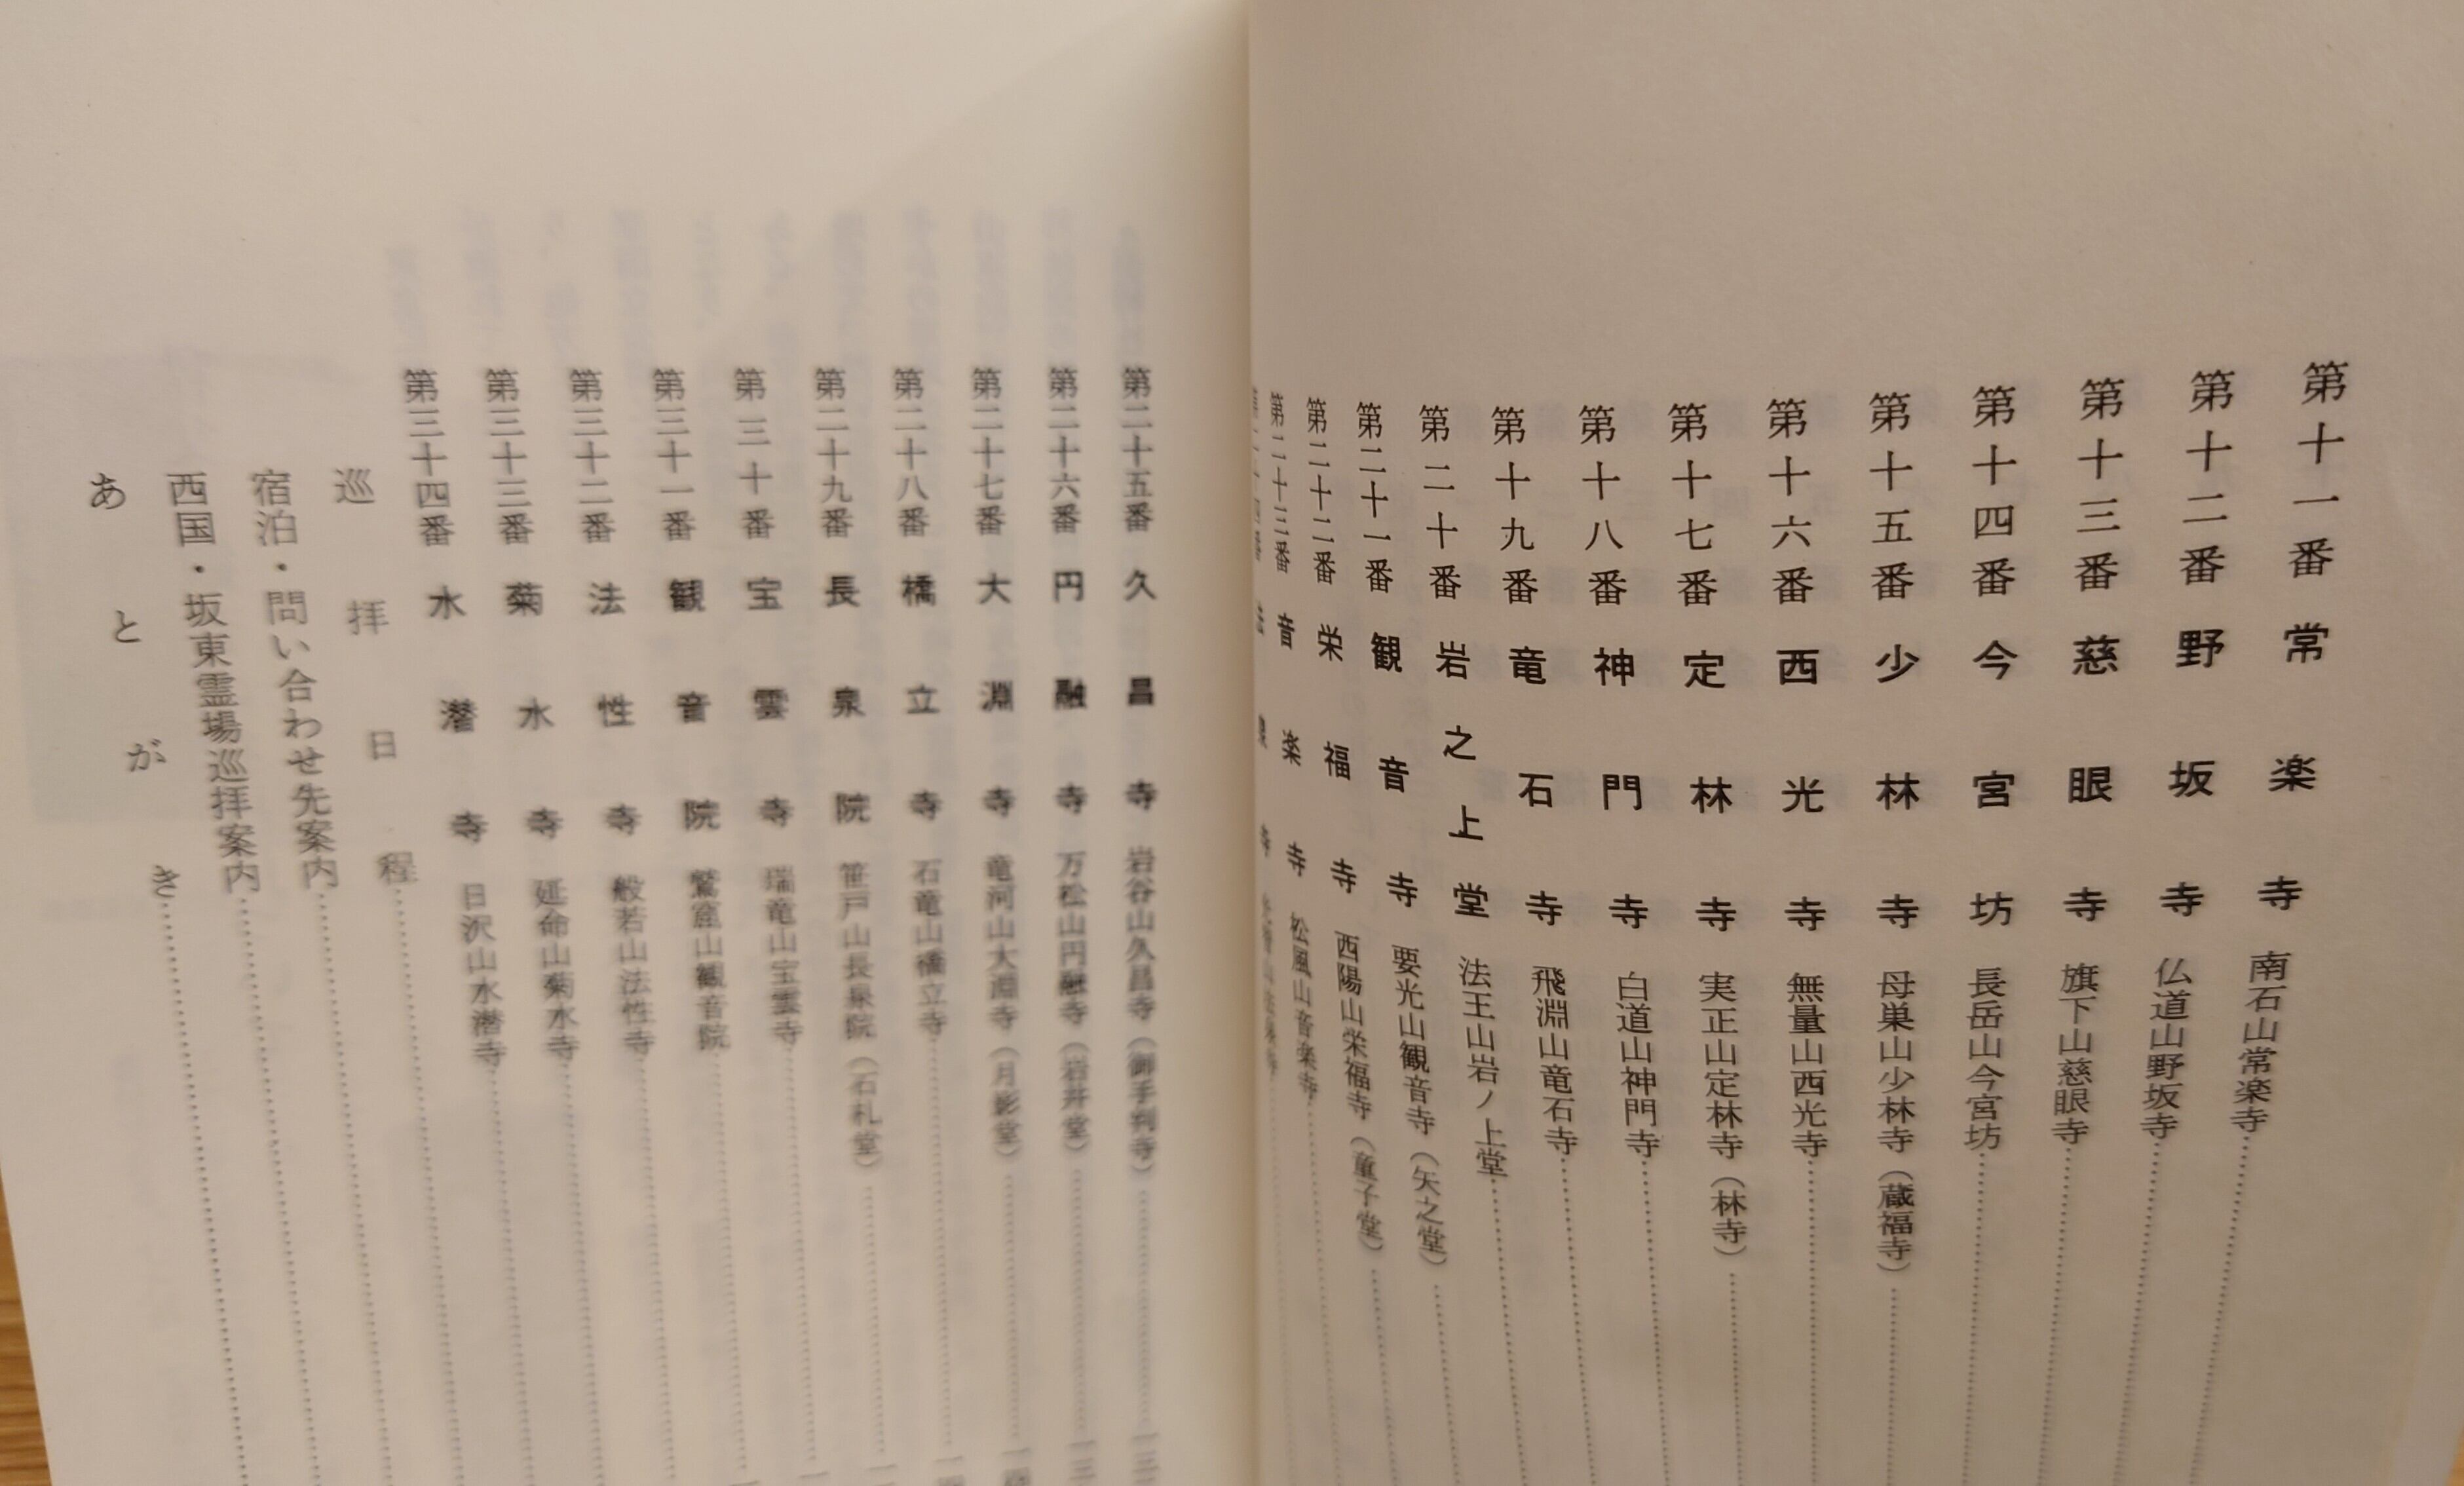 第十一番 常楽寺 南石山常楽寺
第十二番 野坂寺 仏道山野坂寺
第十三番 慈眼寺 旗下山慈眼寺
第十四番 今宮坊 長岳山今宮坊
第十五番 少林寺 母巣山少林寺(蔵福寺)
第十六番 西光寺 無量山西光寺
第十七番 定林寺 実正山定林寺(林寺)
第十八番 神門寺 白道山神門寺
第十九番 竜石寺 飛淵山竜石寺
第二十番 岩之上堂 法王山岩ノ上堂
第二十一番 観音寺 要光山観音寺(矢之堂)
第二十二番 栄福寺 西陽山栄福寺(童子堂)
第二十三番 音楽寺 松風山音楽寺
第二十五番 久昌寺 岩谷山久昌寺(御手判寺)
第二十六番 円融寺 万松山円融寺(岩井堂)
第二十七番 大淵寺 竜河山大淵寺(月影堂)
第二十八番 橋立寺 石竜山橋立寺
第二十九番 長泉院 笹戸山長泉院(石札堂)
第三十番 宝雲寺 瑞竜山宝雲寺
第三十一番 観音院 鷲窟山観音院
第三十二番 法性寺 般若山法性寺
第三十三番 菊水寺 延命山菊水寺
第三十四番 水潜寺 日沢山水潜寺
巡拝日程
宿泊・問い合わせ先案内
西国・坂東霊場巡拝案内
あとがき